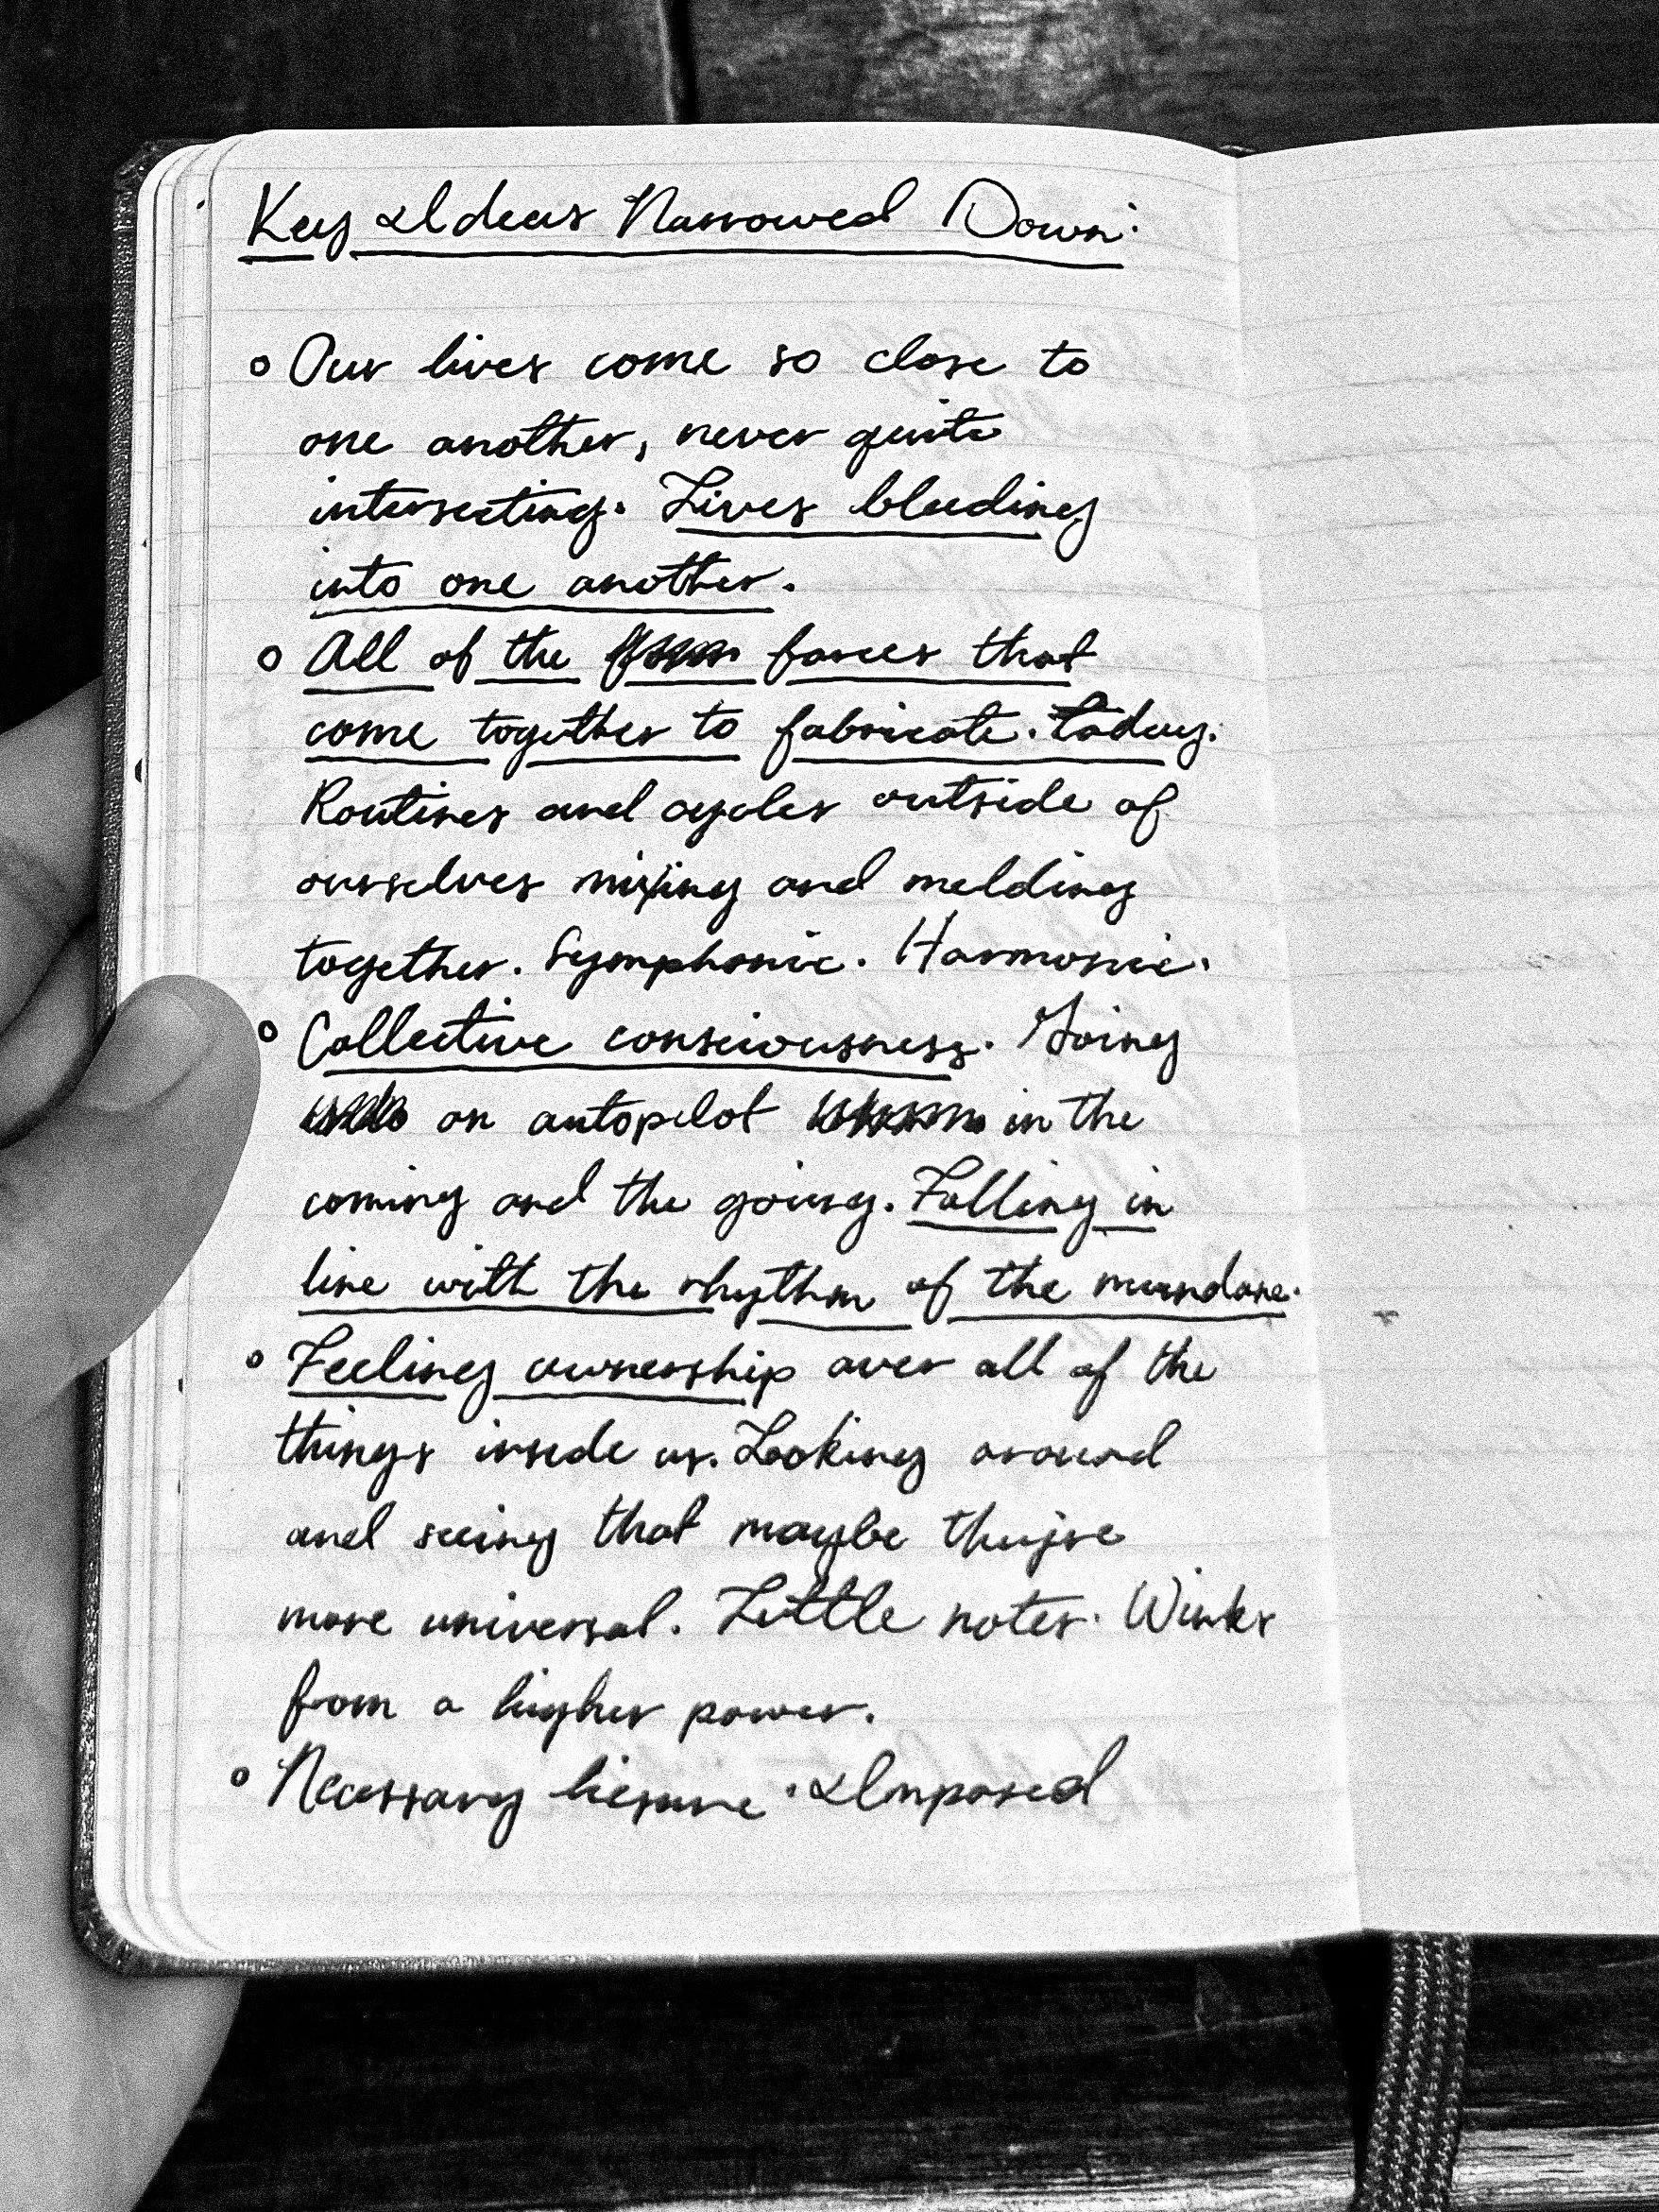 Key Ideas Narrowed Down:
Our lives come so close to
one another, never quite
intersecting. Lives bleeding
into one another.
All of the forces that
come together to fabricate. today.
Routines and cycles outside of
ourselves mixing and melding
together. Symphonic. Harmonic.
Collective consciousness. Going
on autopilot in the
coming and the going. Falling in
line with the rhythm of the mundane.
Feeling ownership over all of the
things inside us. Looking around
and seeing that maybe they're
more universal. Little notes. Winks
from a higher power.
Necessary liesure. Imposed